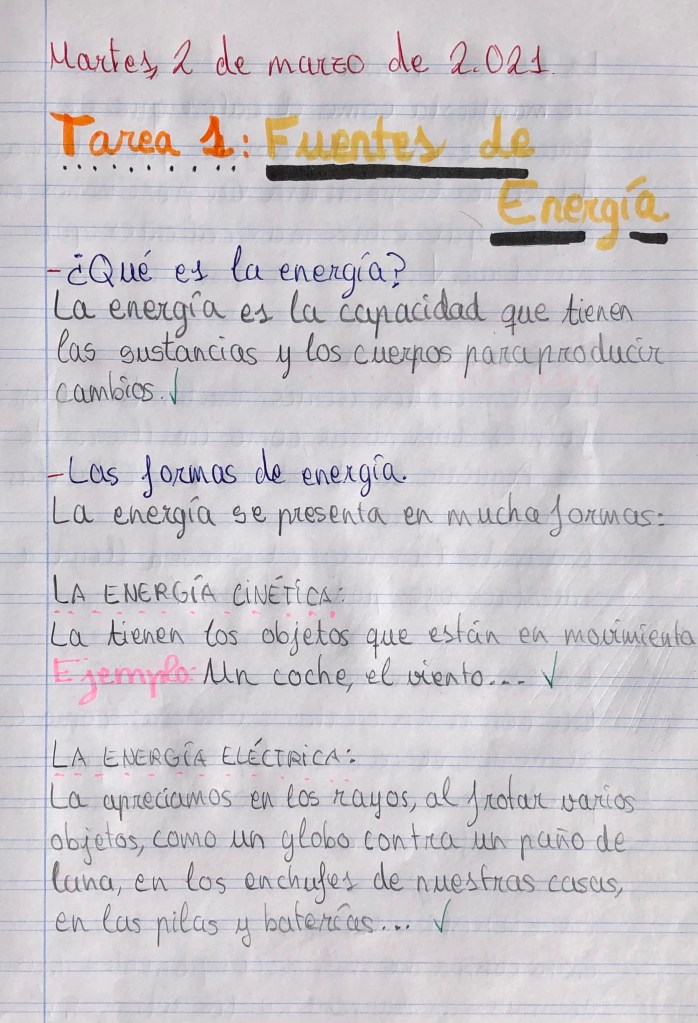 Martes, 2 de marzo de 2.021.
Tarea 1: Fuentes de
Energía
-¿Qué es la energía?
La energía es la capacidad que tienen
las sustancias y los cuerpos para producir
cambios.
-Las formas de energía.
La energía se presenta en mucha formas:
LA ENERGÍA CINÉTICA:
La tienen los objetos que están en movimiento
Ejemplo: Un coche, el viento...
LA ENERGÍA ELÉCTRICA:
La apreciamos en los rayos, al frotar varios
objetos, como un globo contra un paño de
lana, en los enchufes de nuestras casas,
en las pilas y baterías...